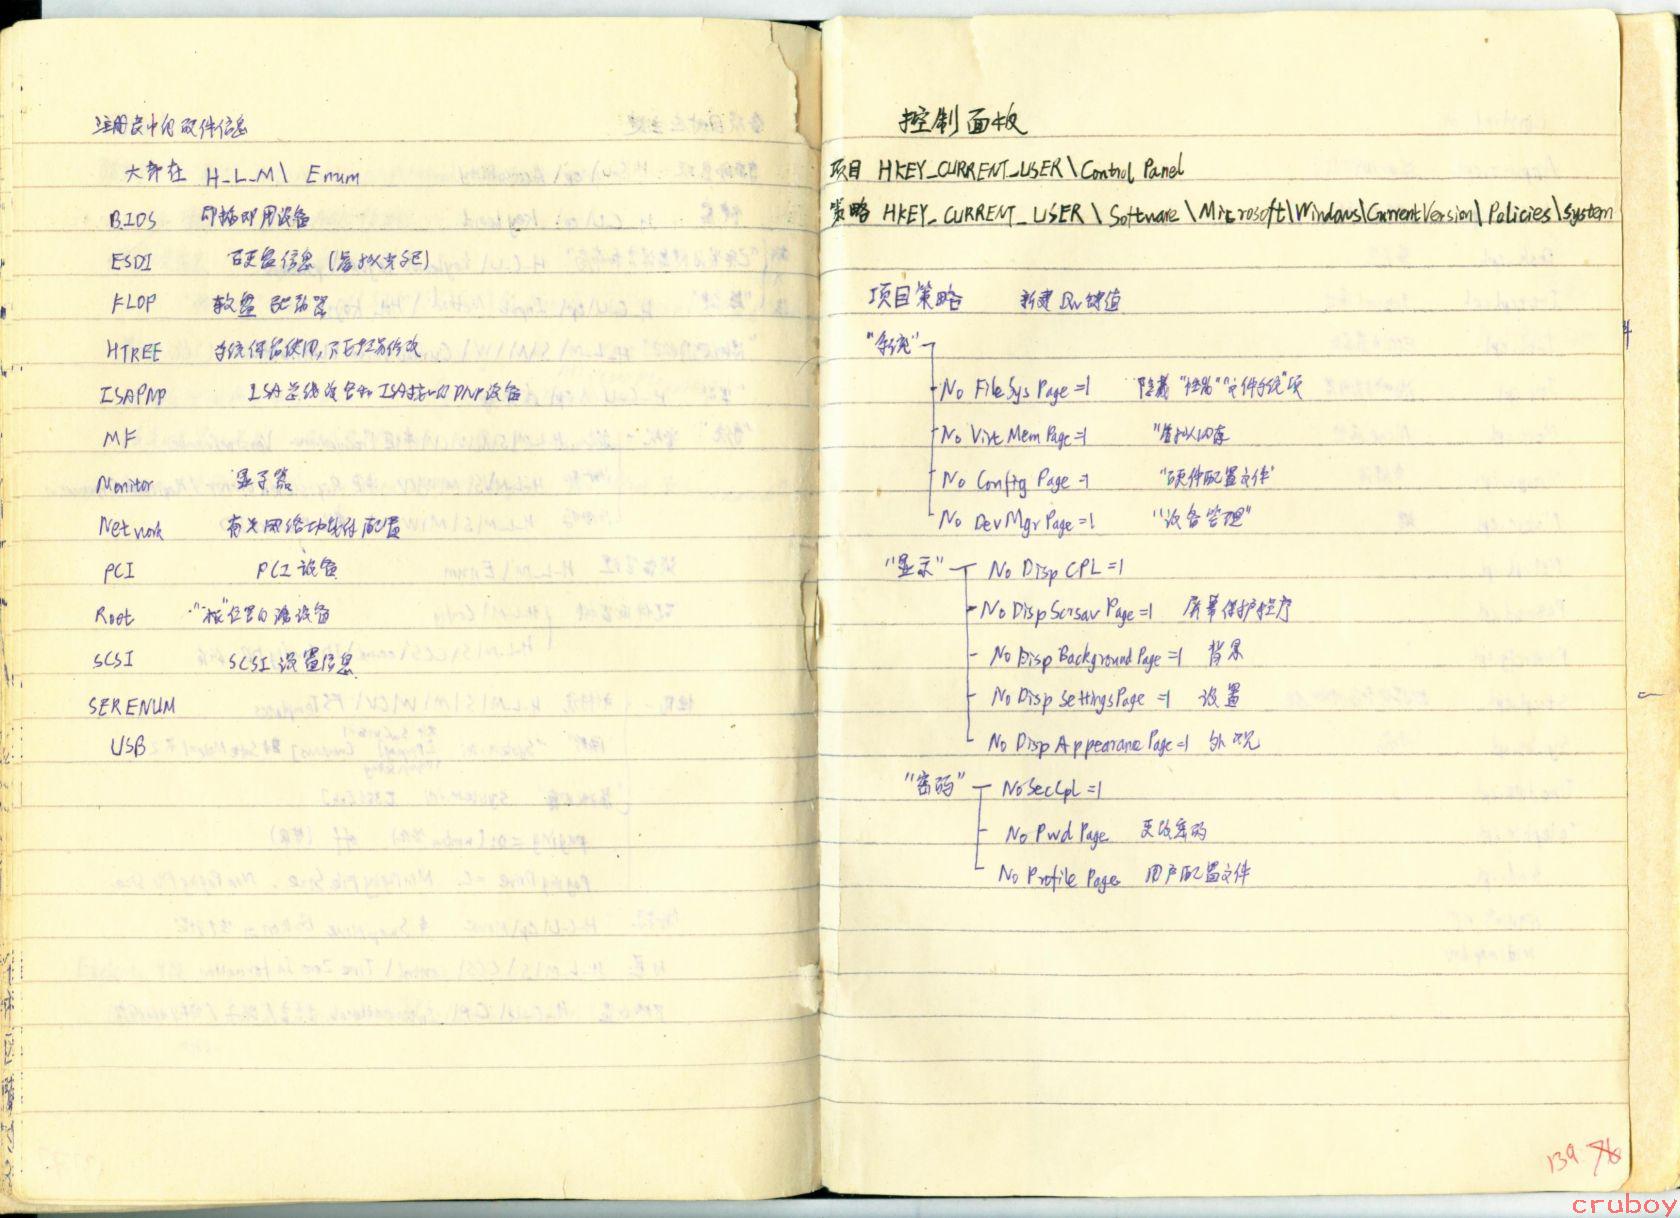 注册表中的硬件信息
大部在 H_L_M\ Enum
BIOS 即插即用设备
ESDI 硬盘信息(虚拟光驱)
FLOP 软盘驱动器
HTREE 为统保留使用,不可轻易修改
ISAPNP ISA总线设备和ISA接口的PNP设备
MF
Monitor 显示器
Network 有关网络功能的配置
PCI PCI 设备
Root "根"位置的 设备
SCSI SCSI 设置信息
SERENUM
USB
控制面板
项目 HKEY_CURRENT_USER\Control Panel
策略 HKEY_CURRENT_USER\Software\Microsoft\Windows\CurrentVersion\Policies\System
项目策略 新建 键值
"系统"
No FileSys Page=1 隐藏"性能""文件系统"项
No Virt Mem Page=1 "虚拟内存
No Config Page=1 "硬件配置文件"
No DevMgr Page=1 "设备管理"
"显示" No Disp CPL=1
No Disp Scrsav Page=1 屏幕保护程序
No Disp Background Page=1 背景
No Disp Settings Page=1 设置
No Disp Appearance Page=1 外观
"密码" No SecCpl=1
No Pwd Page 更改密码
No Profile Page 用户配置文件
139
cruboy